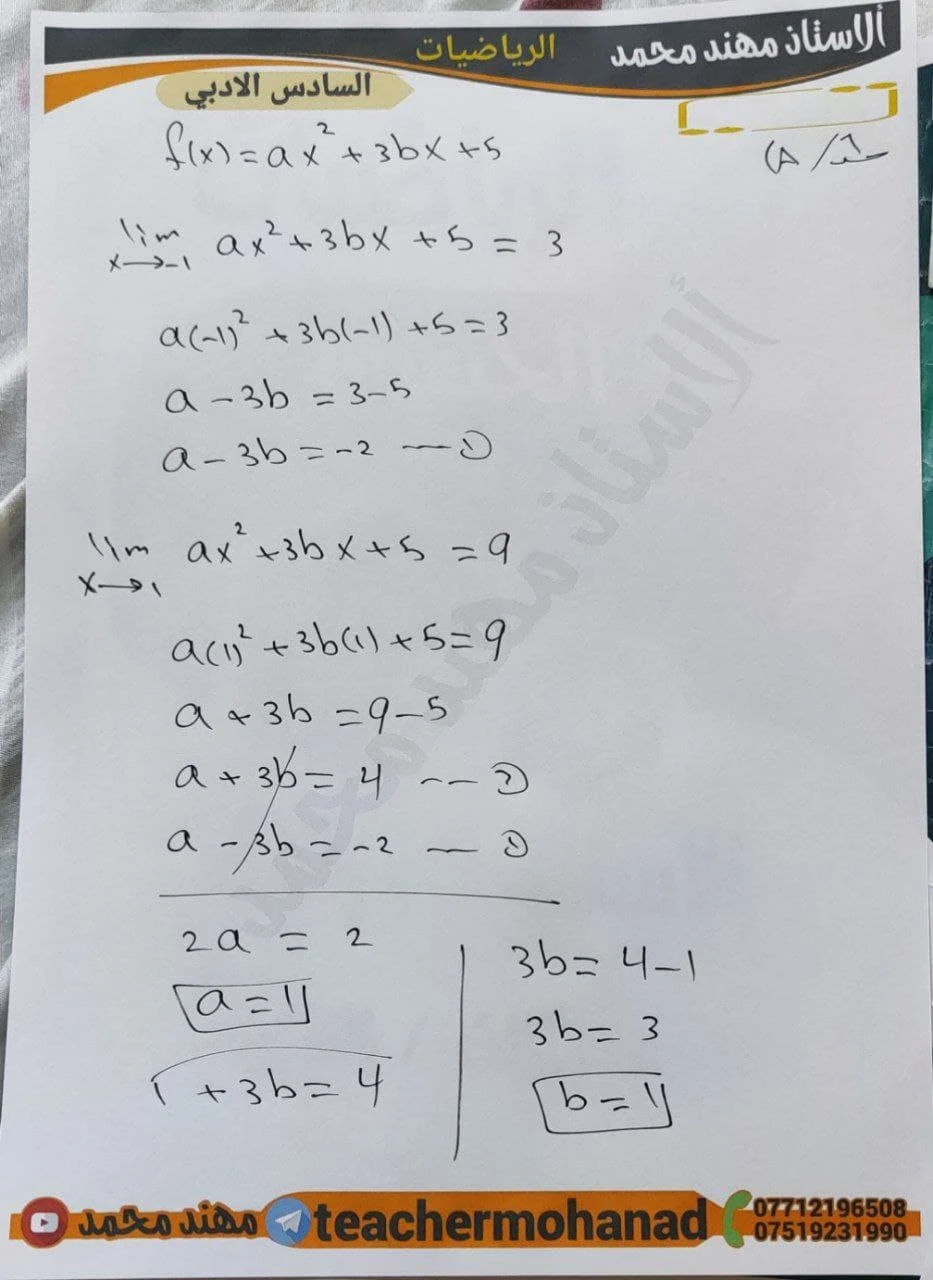 الاستاذ مهند محمد
الرياضيات
السادس الادبي
f(x) = ax² + 3bx + 5
lim x→-1 ax² + 3bx + 5 = 3
a(-1)² + 3b(-1) + 5 = 3
a - 3b = 3 - 5
a - 3b = -2 — ①
lim x→1 ax² + 3bx + 5 = 9
a(1)² + 3b(1) + 5 = 9
a + 3b = 9 - 5
a + 3b = 4 -- ②
a - 3b = -2 — ①
2a = 2
a = 1
1 + 3b = 4
3b = 4 - 1
3b = 3
b = 1
الاستاذ مهند محمد
مهند محمد
teachermohanad
07712196508
07519231990